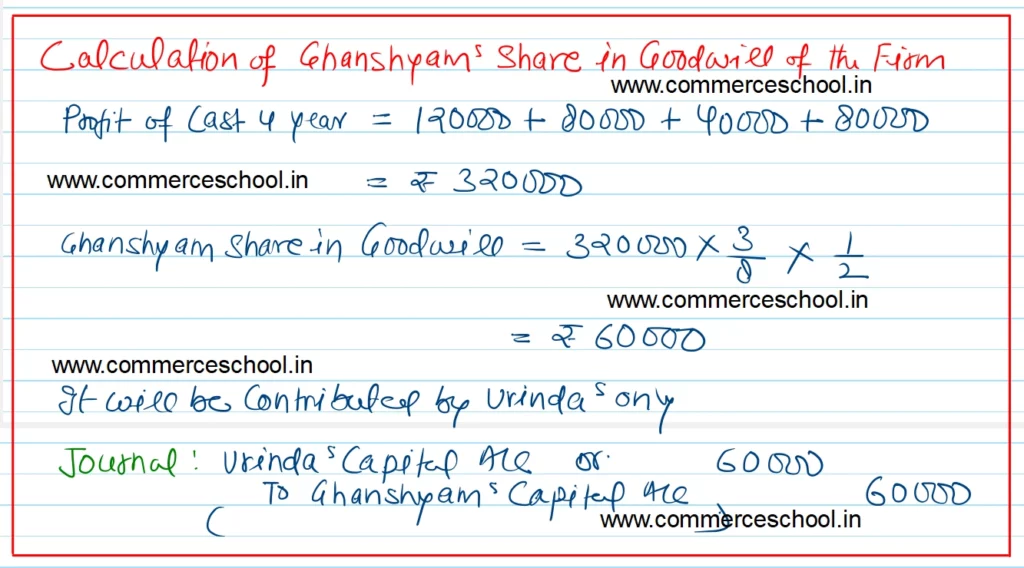 Calculation of Ghanshyam's Share in Goodwill of the Firm
www.commerceschool.in
Profit of Last 4 year = 120000 + 80000 + 40000 + 80000
www.commerceschool.in = ₹ 320000
Ghanshyam Share in Goodwill = 320000 × 3/8 × 1/2
www.commerceschool.in
= ₹ 60000
www.commerceschool.in
It will be Contributed by Vrinda's only
Journal: Vrinda's Capital A/c Dr. 60000
To Ghanshyam's Capital A/c 60000
( )
www.commerceschool.in